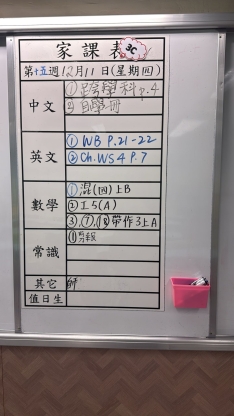 家課表 3C
第十五週12月11日(星期四)
中文 ①跨學科p.4
②自學冊
英文 ① WB P.21-22
② Ch.WS4 P.7
數學 ①混(四)上B
②工5(A)
③⑦,⑱帶作3上A
常識 ①
其它
值日生